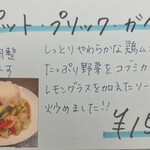 ット・プリック・ガ
しっとりやわらかな鶏ム
たっぷり野菜をコブミカ
レモングラスを加えたソー
炒めました!!
調整
す
¥15